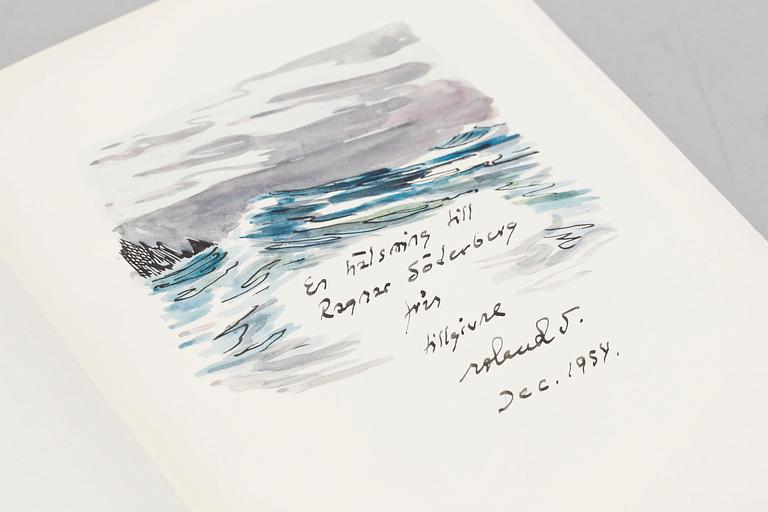 En hälsning till
Ragnar Söderberg
från
tillgivne
roland S.
Dec. 1954.